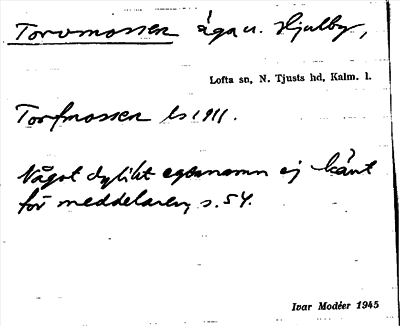 Torvmossen äga u. Hjulby,
Lofta sn, N. Tjusts hd, Kalm. l.
Torfmossen ls 1911.
Något dylikt egonamn ej känt
för meddelaren, s. 54.
Ivar Modéer 1945